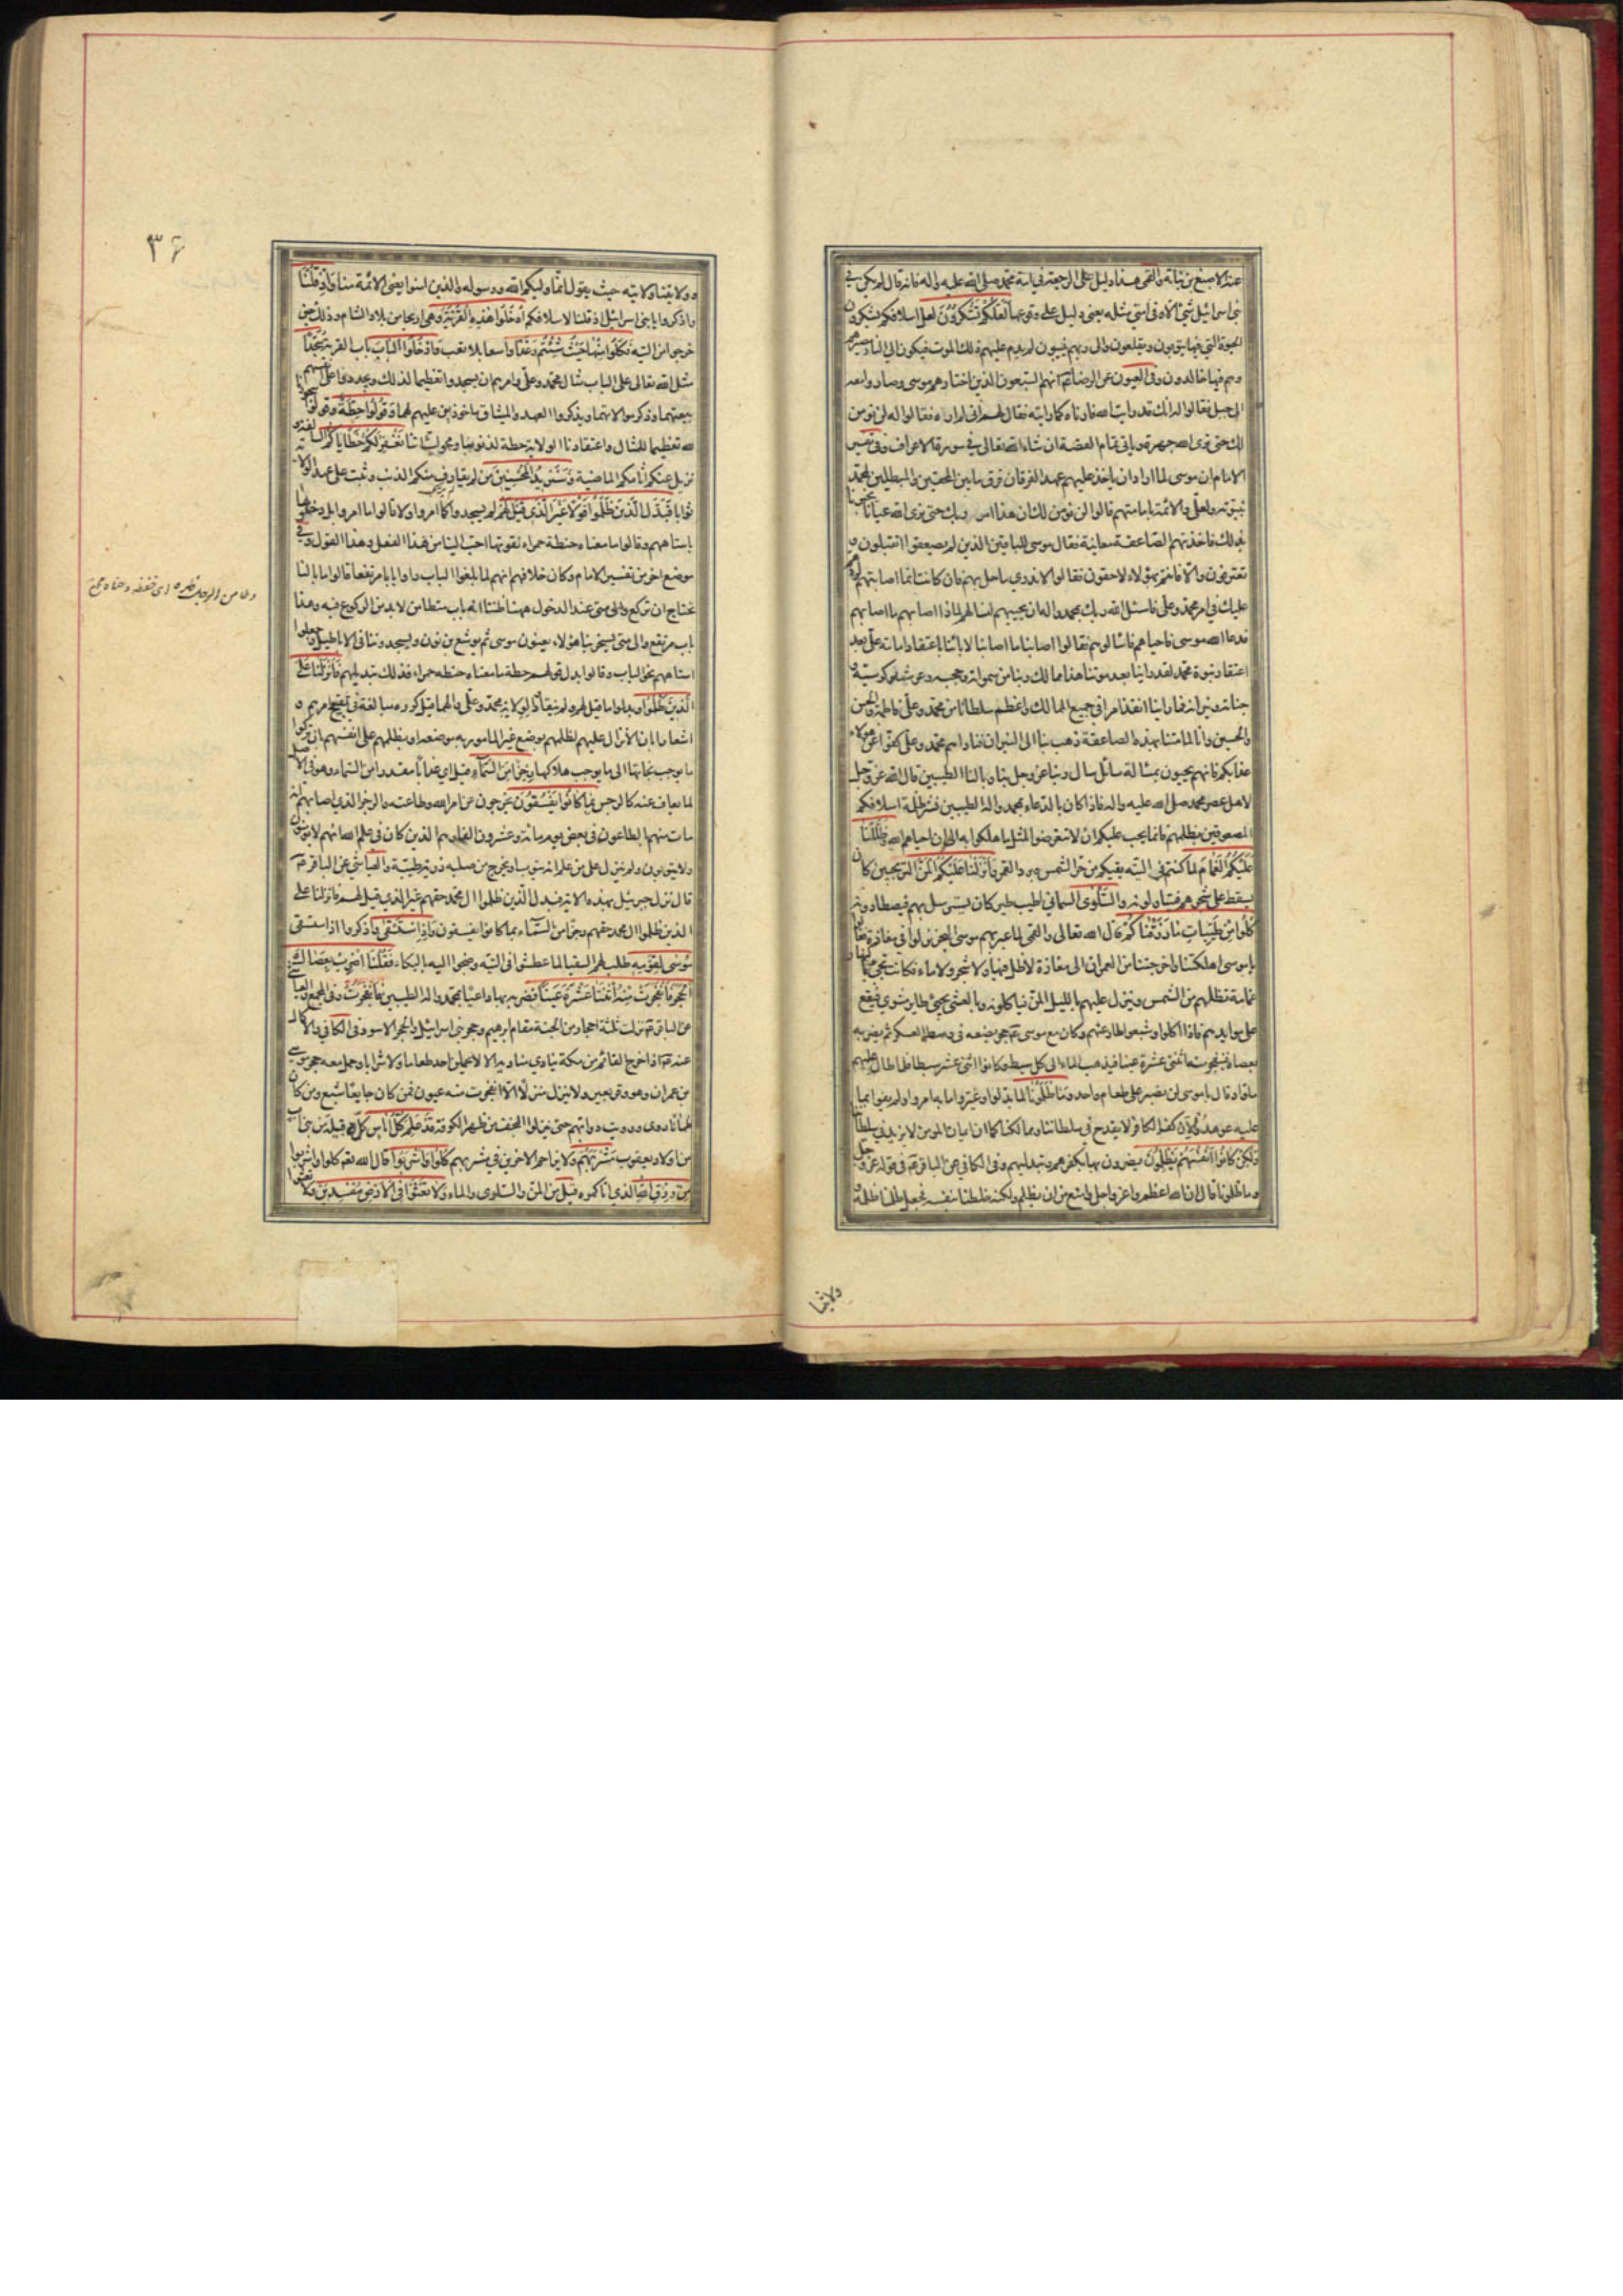 عند الاصبغ بن نباتة والقمي هذا دليل على الرجعة في امة محمد صلى الله عليه واله فانه قال لم يكن في
بني اسرائيل شيء الا وفي امتي مثله يعني دليل على وقوعها لَعَلَّكُمْ تَشْكُرُونَ لعل اسلافكم يشكرون
الحيوة التي فيها يتوبون ويقلعون والى ربهم ينيبون لم يدم عليهم ذلك الموت فيكون الى النار مصيرهم
وهم فيها خالدون وفي العيون عن الرضا انهم السبعون الذين اختارهم موسى وصاروا معه
الى جبل فقالوا له انك قد رايت الله فارناه كما رايته فقال لهم اني لم اره فقالوا له لن نؤمن
لك حتى نرى الله جهرة وياتي تمام القصة ان شاء الله تعالى في سورة الاعراف وفي تفسير
الامام ان موسى لما اراد ان ياخذ عليهم عهدا لفرقان فرق ما بين المحقين والمبطلين لمحمد
بنبوته ولعلي والائمة بامامتهم قالوا لن نؤمن لك ان هذا امر ربك حتى نرى الله عيانا يخبرنا
بذلك فاخذتهم الصاعقة معاينة فقال موسى للباقين الذين لم يصعقوا اتقبلون و
تعترفون والا فانتم بهؤلاء لاحقون فقالوا لا ندري ما حل بهم فان كانت انما اصابتهم لردهم
عليك في امر محمد وعلي فاسئل الله ربك بمحمد واله ان يحييهم لنسالهم لماذا اصابهم ما اصابهم
فدعا الله موسى فاحياهم فاسئالوهم فقالوا اصابنا ما اصابنا لابائنا اعتقاد امامة علي بعد
اعتقاد نبوة محمد لقد راينا بعد موتنا هذا ممالك ربنا من سمواته وحجبه وعرشه وكرسيه و
جنانه ونيرانه فما راينا انفذ امرا في جميع الممالك واعظم سلطانا من محمد وعلي وفاطمة والحسن
والحسين وانا لما متنا بهذه الصاعقة ذهب بنا الى النيران فناداهم محمد وعلي كفوا عن هؤلاء
عذابكم فانهم يحيون بمسالة سائل سال ربنا عز وجل بنا وبالنا الطيبين قال الله عز وجل
لاهل عصر محمد صلى الله عليه واله فاذا كان بالدعاء بمحمد واله الطيبين نشر ظلمة اسلافكم
المصعوقين بظلمهم فانما يجب عليكم ان لا تتعرضوا لمثل ما هلكوا به الى ان احياهم الله وَظَلَّلْنَا
عَلَيْكُمُ الْغَمَامَ لما كنتم في التيه يقيكم من حر الشمس وبرد القمر وَاَنْزَلْنَا عَلَيْكُمُ الْمَنَّ الترنجبين كان
يسقط على شجرهم فيتناولونه وَالسَّلْوَى السماني اطيب طير كان يسترسل بهم فيصطادونه
كُلُوا مِنْ طَيِّبَاتِ مَا رَزَقْنَاكُمْ قال الله تعالى والقمي لما عبر بهم موسى البحر نزلوا في مفازة فقالوا
يا موسى اهلكتنا واخرجتنا من العمران الى مفازة لا ظل فيها ولا شجر ولا ماء فكانت تجيء بالنهار
غمامة تظلهم من الشمس وينزل عليهم بالليل المن فياكلونه وبالعشي يجيء طاير مشوي فيقع
على موايدهم فاذا اكلوا وشبعوا طار عنهم وكان مع موسى حجر يضعه في وسط العسكر ثم يضربه
بعصاه فتنفجر منها اثنتى عشرة عينا فيذهب الماء الى كل سبط وكانوا اثنى عشر سبطا فلما طال عليهم
ملوا وقال يا موسى لن نصبر على طعام واحد وَمَا ظَلَمُونَا لما بدلوا وغيروا ما به امروا ولم يفوا بما
عليه عوهدوا لان كفر الكافر لا يقدح في سلطاننا وممالكنا كما ان ايمان المؤمن لا يزيد في سلطاننا
وَلَكِنْ كَانُوا اَنْفُسَهُمْ يَظْلِمُونَ يضرون بها بكفرهم وتبديلهم وفي الكافي عن الباقر في قوله عز وجل
وما ظلمونا قال ان الله اعظم واعز واجل وامنع من ان يظلم ولكنه خلطنا بنفسه فجعل ظلمنا ظلمه و
ولايتنا
٣۶
وولايتنا ولايته حيث يقول انما وليكم الله ورسوله والذين امنوا يعني الائمة منا وَاِذْ قُلْنَا
واذكروا يا بني اسرائيل اذ قلنا لاسلافكم اُدْخُلُوا هَذِهِ الْقَرْيَةَ وهي اريحا من بلاد الشام وذلك حين
خرجوا من التيه فَكُلُوا مِنْهَا حَيْثُ شِئْتُمْ رَغَدًا واسعا بلا تعب وَادْخُلُوا الْبَابَ باب القرية سُجَّدًا
مثل الله تعالى على الباب مثال محمد وعلي وامرهم ان يسجدوا تعظيما لذلك ويجددوا على انفسهم
بيعتهما وذكر موالاتهما ويذكروا العهد والميثاق ماخوذين عليهم لهما وَقُولُوا حِطَّةٌ وقولوا سجودنا
لله تعظيما للمثال واعتقادنا الولاية حطة لذنوبنا ومحو لسيئاتنا نَغْفِرْ لَكُمْ خَطَايَاكُمْ السالفة و
نزيل عنكم اثامكم الماضية وَسَنَزِيدُ الْمُحْسِنِينَ من لم يقارف منكم الذنب وثبت على عهد الولاية
ثوابا فَبَدَّلَ الَّذِينَ ظَلَمُوا قَوْلًا غَيْرَ الَّذِي قِيلَ لَهُمْ لم يسجدوا كما امروا ولا قالوا ما امروا بل دخلوها
باستاههم وقالوا ما معناه حنطة حمراء نقوتها احب الينا من هذا الفعل وهذا القول وفي
موضع اخر من تفسير الامام وكان خلافهم انهم لما بلغوا الباب راوا بابا مرتفعا قالوا ما بالنا
نحتاج ان نركع والى متى عند الدخول ههنا ظننا انه باب متطامن لا بد من الركوع فيه وهذا
باب مرتفع والى متى يسخر بنا هؤلاء يعنون موسى ثم يوشع بن نون ويسجدوننا في الاباطيل وجعلوا
استاههم نحو الباب وقالوا بدل قولهم حطة ما معناه حنطة حمراء فذلك تبديلهم فَاَنْزَلْنَا عَلَى
الَّذِينَ ظَلَمُوا وبدلوا ما قيل لهم ولم ينقادوا لولاية محمد وعلي والهما قيل كرره مبالغة في تقبيح امرهم و
اشعارا بان الانزال عليهم لظلمهم بوضع غير المامور به موضعه او بظلمهم على انفسهم ان تركوا
ما يوجب نجاتها الى ما يوجب هلاكها رِجْزًا مِنَ السَّمَاءِ قيل اي عذابا مقدرا من السماء وهو في الاصل
لما يعاف عنه كالرجس بِمَا كَانُوا يَفْسُقُونَ يخرجون عن امر الله وطاعته والرجز الذي اصابهم انه
مات منهم بالطاعون في بعض يوم مائة وعشرون الفا وهم الذين كان في علم الله انهم لا يؤمنون
ولا يتوبون ولم ينزل على من علم انه يتوب او يخرج من صلبه ذرية طيبة والعياشي عن الباقر
قال نزل جبرئيل بهذه الاية فبدل الذين ظلموا ال محمد حقهم غير الذي قيل لهم فانزلنا على
الذين ظلموا ال محمد حقهم رجزا من السماء بما كانوا يفسقون وَاِذِ اسْتَسْقَى واذكروا اذ استسقى
مُوسَى لِقَوْمِهِ طلب لهم السقيا لما عطشوا في التيه وضجوا اليه بالبكاء فَقُلْنَا اضْرِبْ بِعَصَاكَ
الْحَجَرَ فَانْفَجَرَتْ مِنْهُ اثْنَتَا عَشْرَةَ عَيْنًا فضربه بها داعيا بمحمد واله الطيبين فانفجرت وفي المجمع والعياشي
عن الباقر نزلت ثلثة احجار من الجنة مقام ابرهيم وحجر بني اسرائيل والحجر الاسود وفي الكافي والاكمال
عنه اذا خرج القائم من مكة ينادي مناديه الا لا يحملن احد طعاما ولا شرابا وحمل معه حجر موسى
بن عمران وهو وقر بعير ولا ينزل منزلا الا انفجرت منه عيون فمن كان جايعا شبع ومن كان
ظمانا روى ورويت دوابهم حتى ينزلوا النجف من ظهر الكوفة قَدْ عَلِمَ كُلُّ اُنَاسٍ كل قبيلة من بني اب
من اولاد يعقوب مَشْرَبَهُمْ ولا يزاحم الاخرين في مشربهم كُلُوا وَاشْرَبُوا قال الله لهم كلوا واشربوا
مِنْ رِزْقِ اللهِ الذي اتاكموه قيل من المن والسلوى والماء وَلَا تَعْثَوْا فِي الْاَرْضِ مُفْسِدِينَ ولا تعثوا